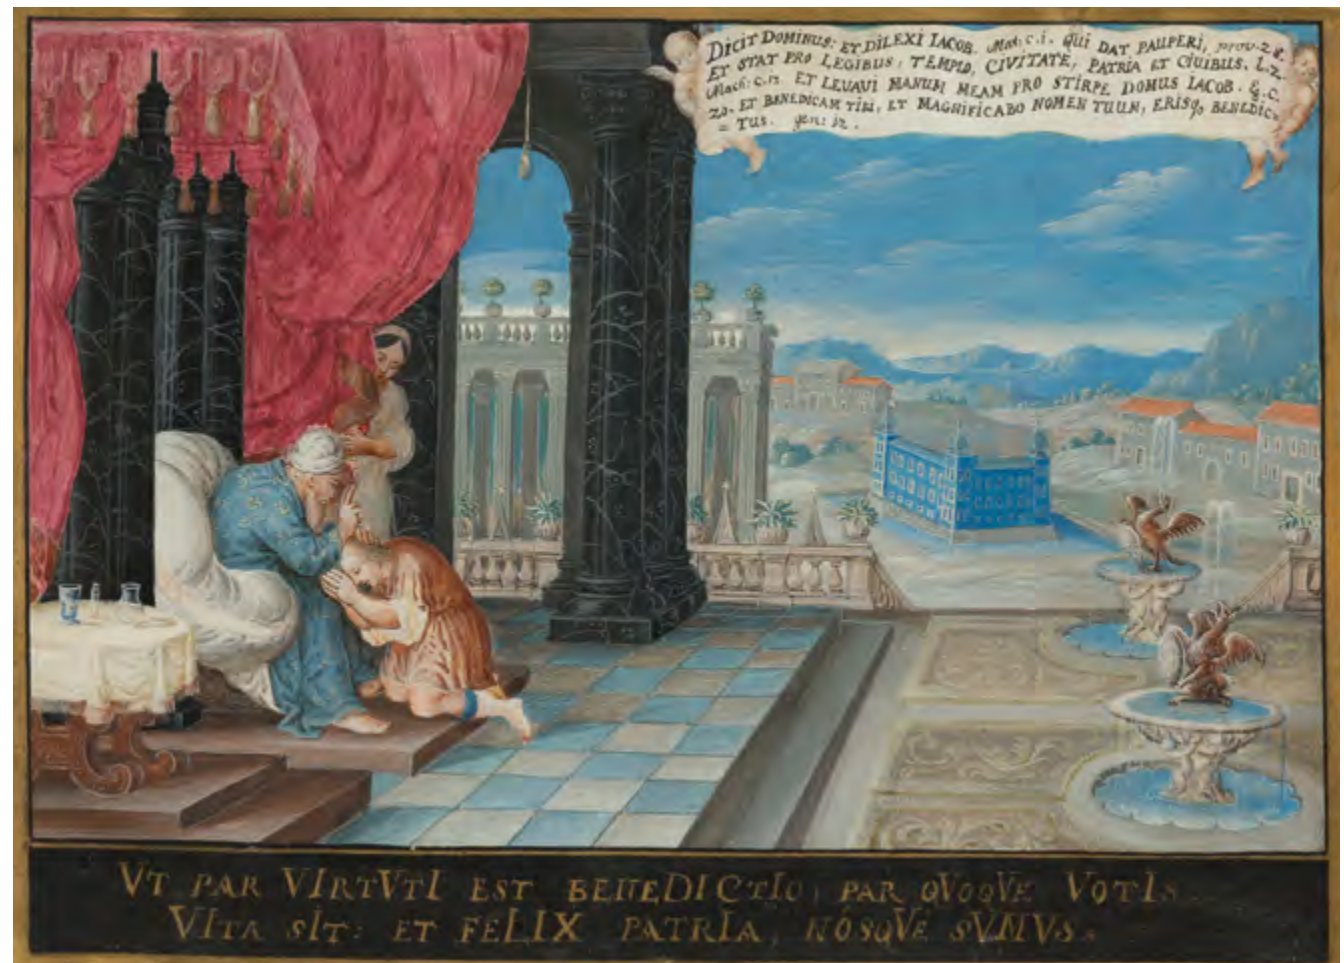 DICIT DOMINUS: ET DILEXI IACOB. Mal: c.i. QUI DAT PAUPERI, prov. 28.
ET STAT PRO LEGIBUS, TEMPLO, CIVITATE, PATRIA ET CIUIBUS. L. 2.
Mach: c. 13. ET LEUAUI MANUM MEAM PRO STIRPE DOMUS IACOB. E. C.
20. ET BENEDICAM TIBI, ET MAGNIFICABO NOMEN TUUM, ERISq BENEDIC=
= TUS. gen: 12.
VT PAR VIRTVTI EST BENEDICTIO, PAR QVOQVE VOTIS
VITA SIT: ET FELIX PATRIA, NÓSQVE SVMVS.